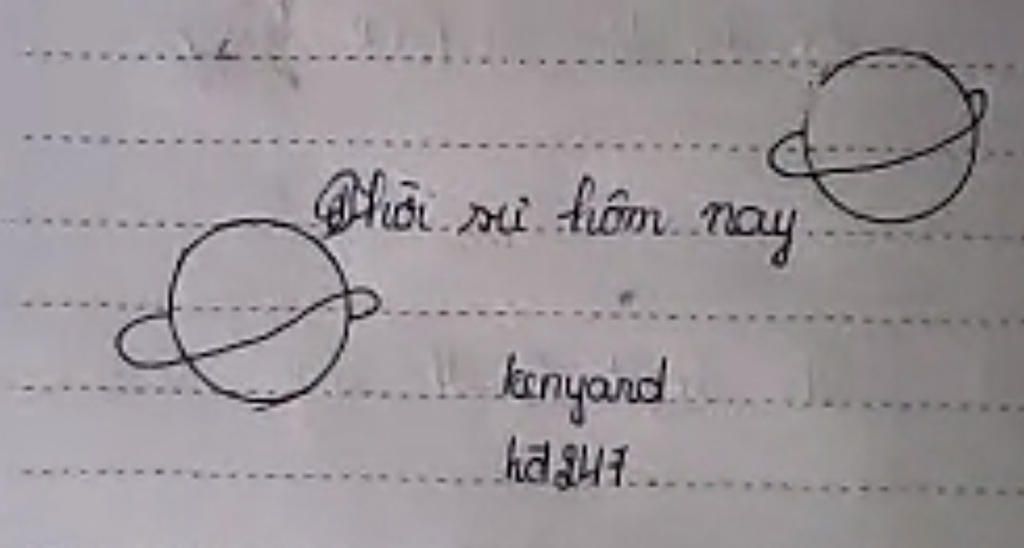 Thời sự hôm nay
kenyard
hd247